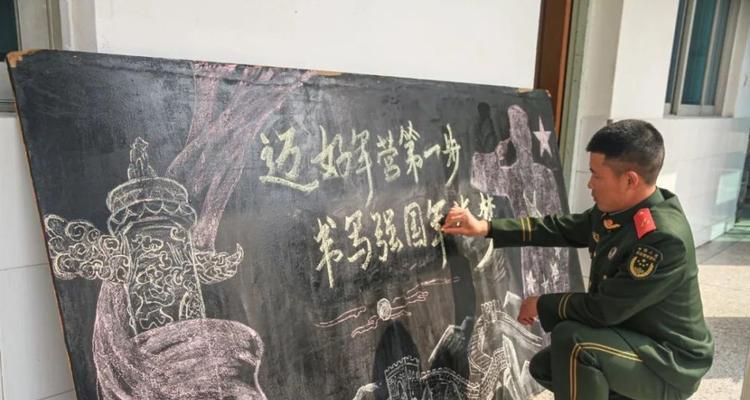 迈好军营第一步
书写强国军梦